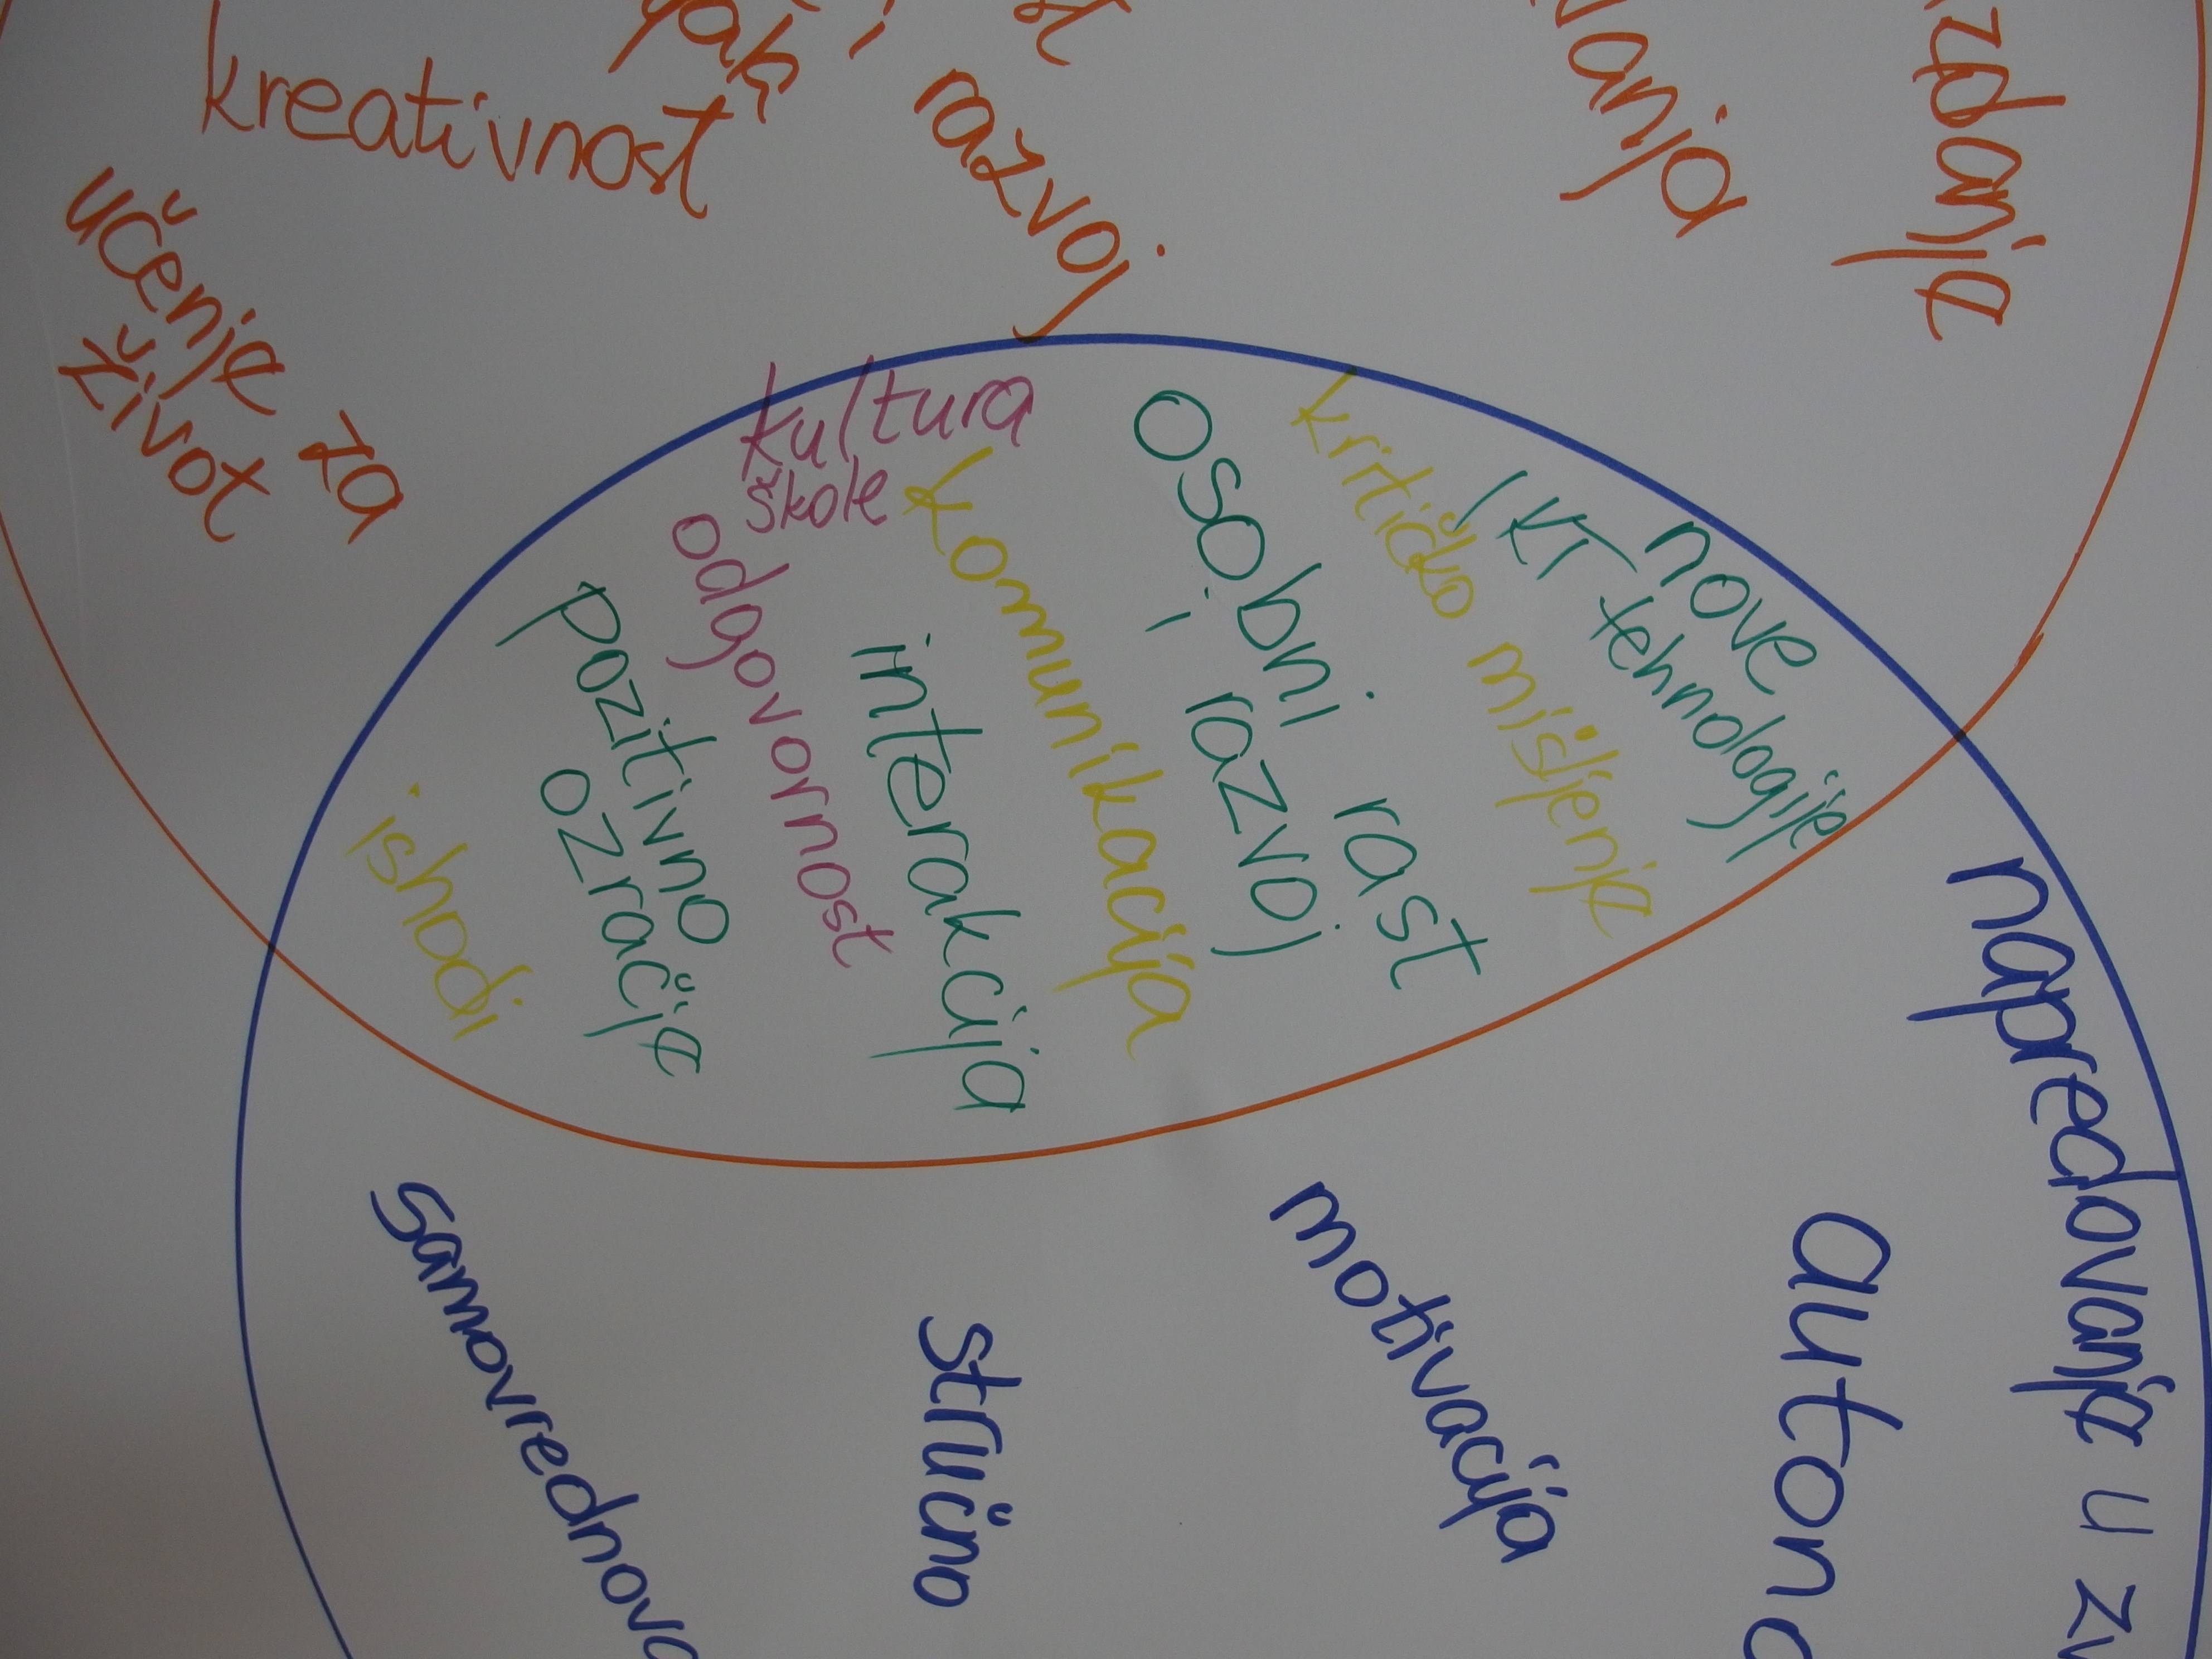 kreativnost
razvoj
učenje za
život
kultura
škole
odgovornost
pozitivno
ozračje
ishodi
interakcija
komunikacija
osobni rast
i razvoj
kritičko mišljenje
IKT nove
tehnologije
napredovanje u zv
auton
motivacija
stručno
samovrednova